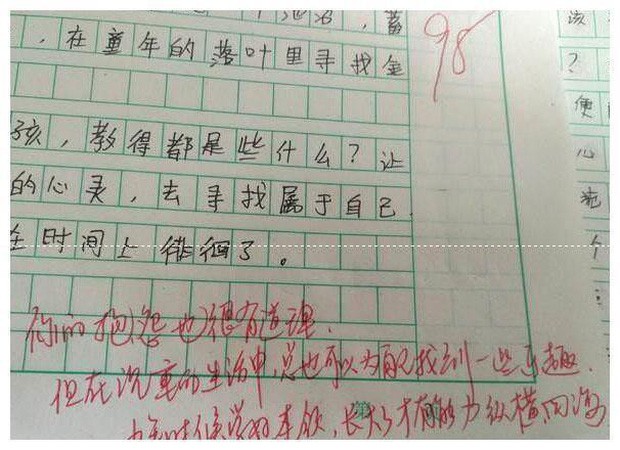 ，在童年的落叶里寻找金
98
该
？
孩，教得都是些什么？让
便
的心灵，去寻找属于自己
心
在时间上徘徊了。
个
你的抱怨也很有道理。
但在沉重的生活中，总也可以为自己找到一些乐趣。
时候学好本领，长大了才有能力纵横四海